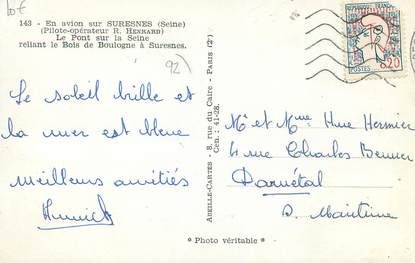 10€
143 - En avion sur SURESNES (Seine)
(Pilote-opérateur R. HENRARD)
Le Pont sur la Seine
reliant le Bois de Boulogne à Suresnes.
92
Le soleil brille et
la mer est bleue
meilleures amitiés
Annick
ABEILLE-CARTES - 8, rue du Caire - PARIS (2e)
Cen. : 41-28.
REPUBLIQUE FRANÇAISE
POSTES 0,20
Mr et Mme Hue Hermier
4 rue Charles Benner
Darnétal
S. Maritime
* Photo véritable *